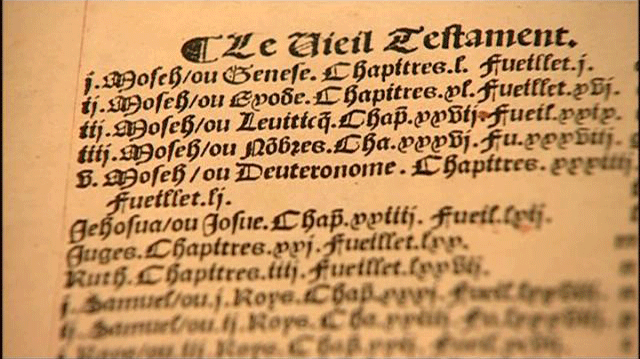 ☾ Le Vieil Testament.
j. Moseh/ou Genese. Chapitres. l. Fueillet. j.
ij. Moseh/ou Exode. Chapitres. xl. Fueillet. xvj.
iij. Moseh/ou Leuiticq̃. Chap̃. xxvij. Fueil. xxix.
iiij. Moseh/ou Nõbres. Cha. xxxvj. Fu. xxxviij.
v. Moseh/ou Deuteronome. Chapitres. xxxiiij
Fueillet. lj.
Jehosua/ou Josue. Chap̃. xxiiij. Fueil. lxij.
Juges. Chapitres. xxj. Fueillet. lxx.
Ruth. Chapitres. iiij. Fueillet. lxxvij.
j. Samuel/ou. j. Roys. Chap̃. xxxj. Fueil.
ij. Samuel/ou. ij. Roys. Cha. xxiiij. Fu.
Roys/ou iij. Roys.